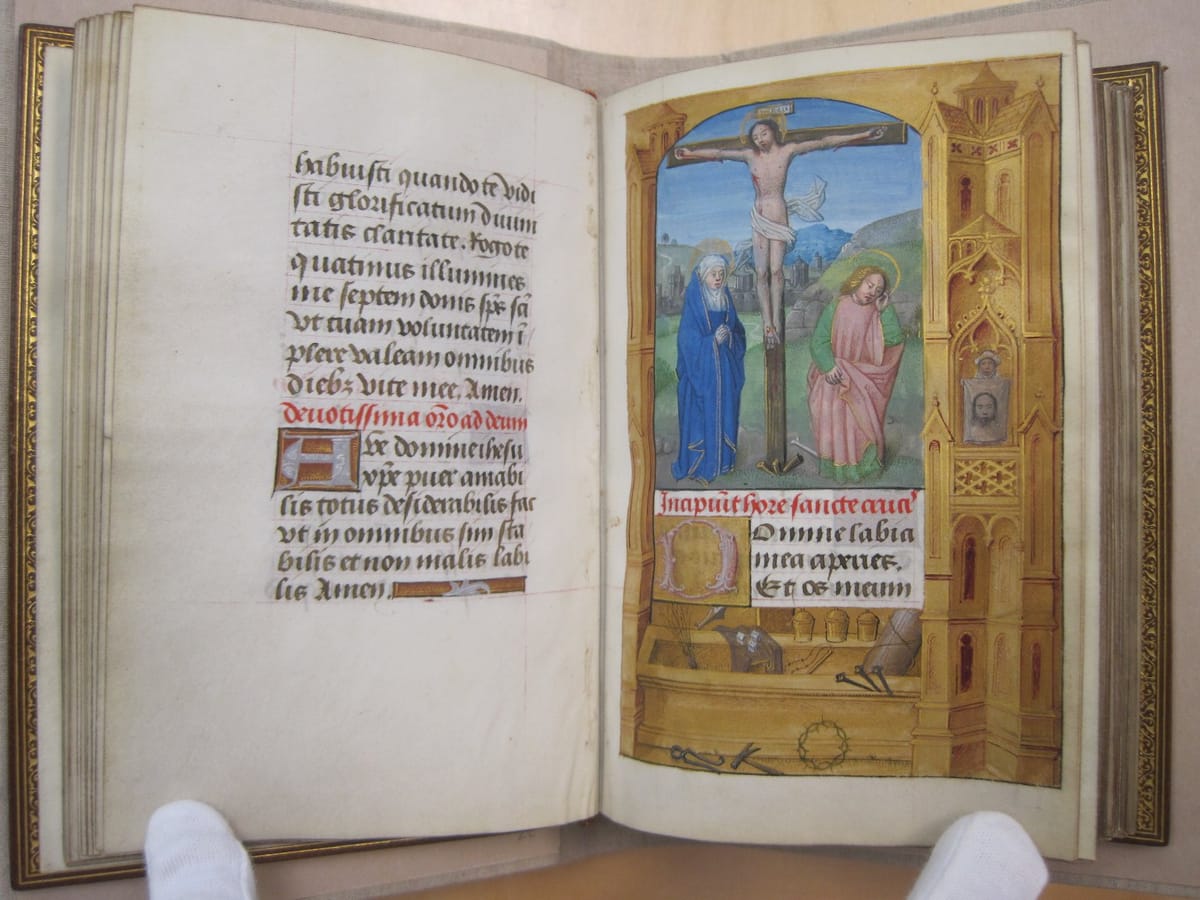 habuisti quando te vidi
sti glorificatum diuini
tatis claritate. Rogo te
quatinus illumines
me septem donis sp̄s sc̄i
vt tuam voluntatem ī
plere valeam omnibus
diebꝫ vite mee. Amen.
deuotissima or̄o ad deum
Aue domine ihesu
xp̄e puer amabi
lis totus desiderabilis fac
vt in omnibus sim sta
bilis et non malis labi
lis Amen.
Incipiūt hore sancte cruci᷒
Domine labia
mea aperies.
Et os meum